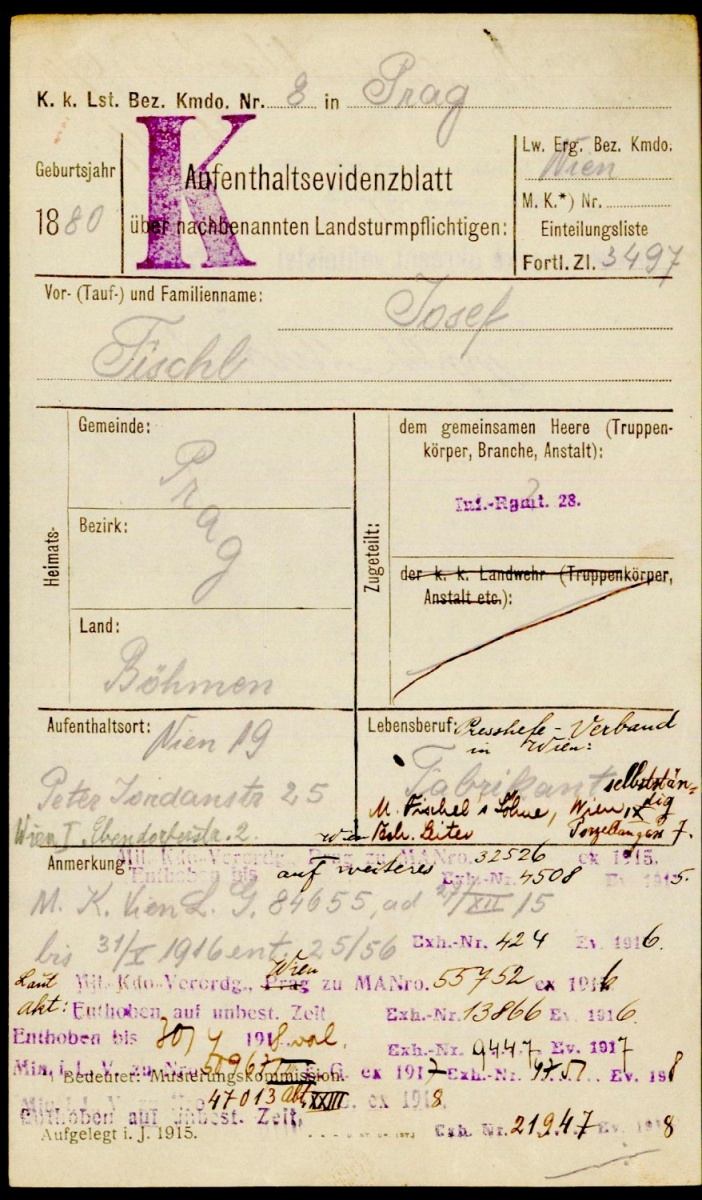 K. k. Lst. Bez. Kmdo. Nr. 8 in Prag
K
Geburtsjahr
1880
Aufenthaltsevidenzblatt
über nachbenannten Landsturmpflichtigen:
Lw. Erg. Bez. Kmdo.
Wien
M. K.*) Nr.
Einteilungsliste
Fortl. Zl. 3497
Vor- (Tauf-) und Familienname:
Josef
Fischl
Heimats-
Gemeinde:
Bezirk:
Prag
Land:
Böhmen
Zugeteilt:
dem gemeinsamen Heere (Truppen-
körper, Branche, Anstalt):
Inf.-Rgmt. 28.
der k. k. Landwehr (Truppenkörper,
Anstalt etc.):
Aufenthaltsort: Wien 19
Peter Jordanstr 25
Wien I. Ebendorferstr. 2.
Lebensberuf: Presshefe-Verband
in Wien:
Fabrikant selbststän-
dig
M. Fischel's Söhne, Wien IX
Porzellangasse 7.
Anmerkung: Mil. Kdo-Verordg., Prag zu MANro. 32526 ex 1915.
Enthoben bis auf weiteres Exh.-Nr. 4508 Ev. 1915.
M. K. Wien L. G. 84655, ad 27/XII 15
bis 31/X 1916 ent. 25/56 Exh.-Nr. 424 Ev. 1916.
Laut Mil. Kdo-Verordg., Prag Wien zu MANro. 55752 ex 1916
akt: Enthoben auf unbest. Zeit Exh.-Nr. 13866 Ev. 1916.
Enthoben bis 30/4 1918 Exh.-Nr. 9447. Ev. 1917
Min. f. L. V. zu Nro. 50967 ex 1917 Exh.-Nr. Ev. 1918
Bedeutet: Musterungskommission.
47013 abt. XXIII ex 1918.
Enthoben auf unbest. Zeit, Exh. Nr. 21947 Ev. 1918
Aufgelegt i. J. 1915.